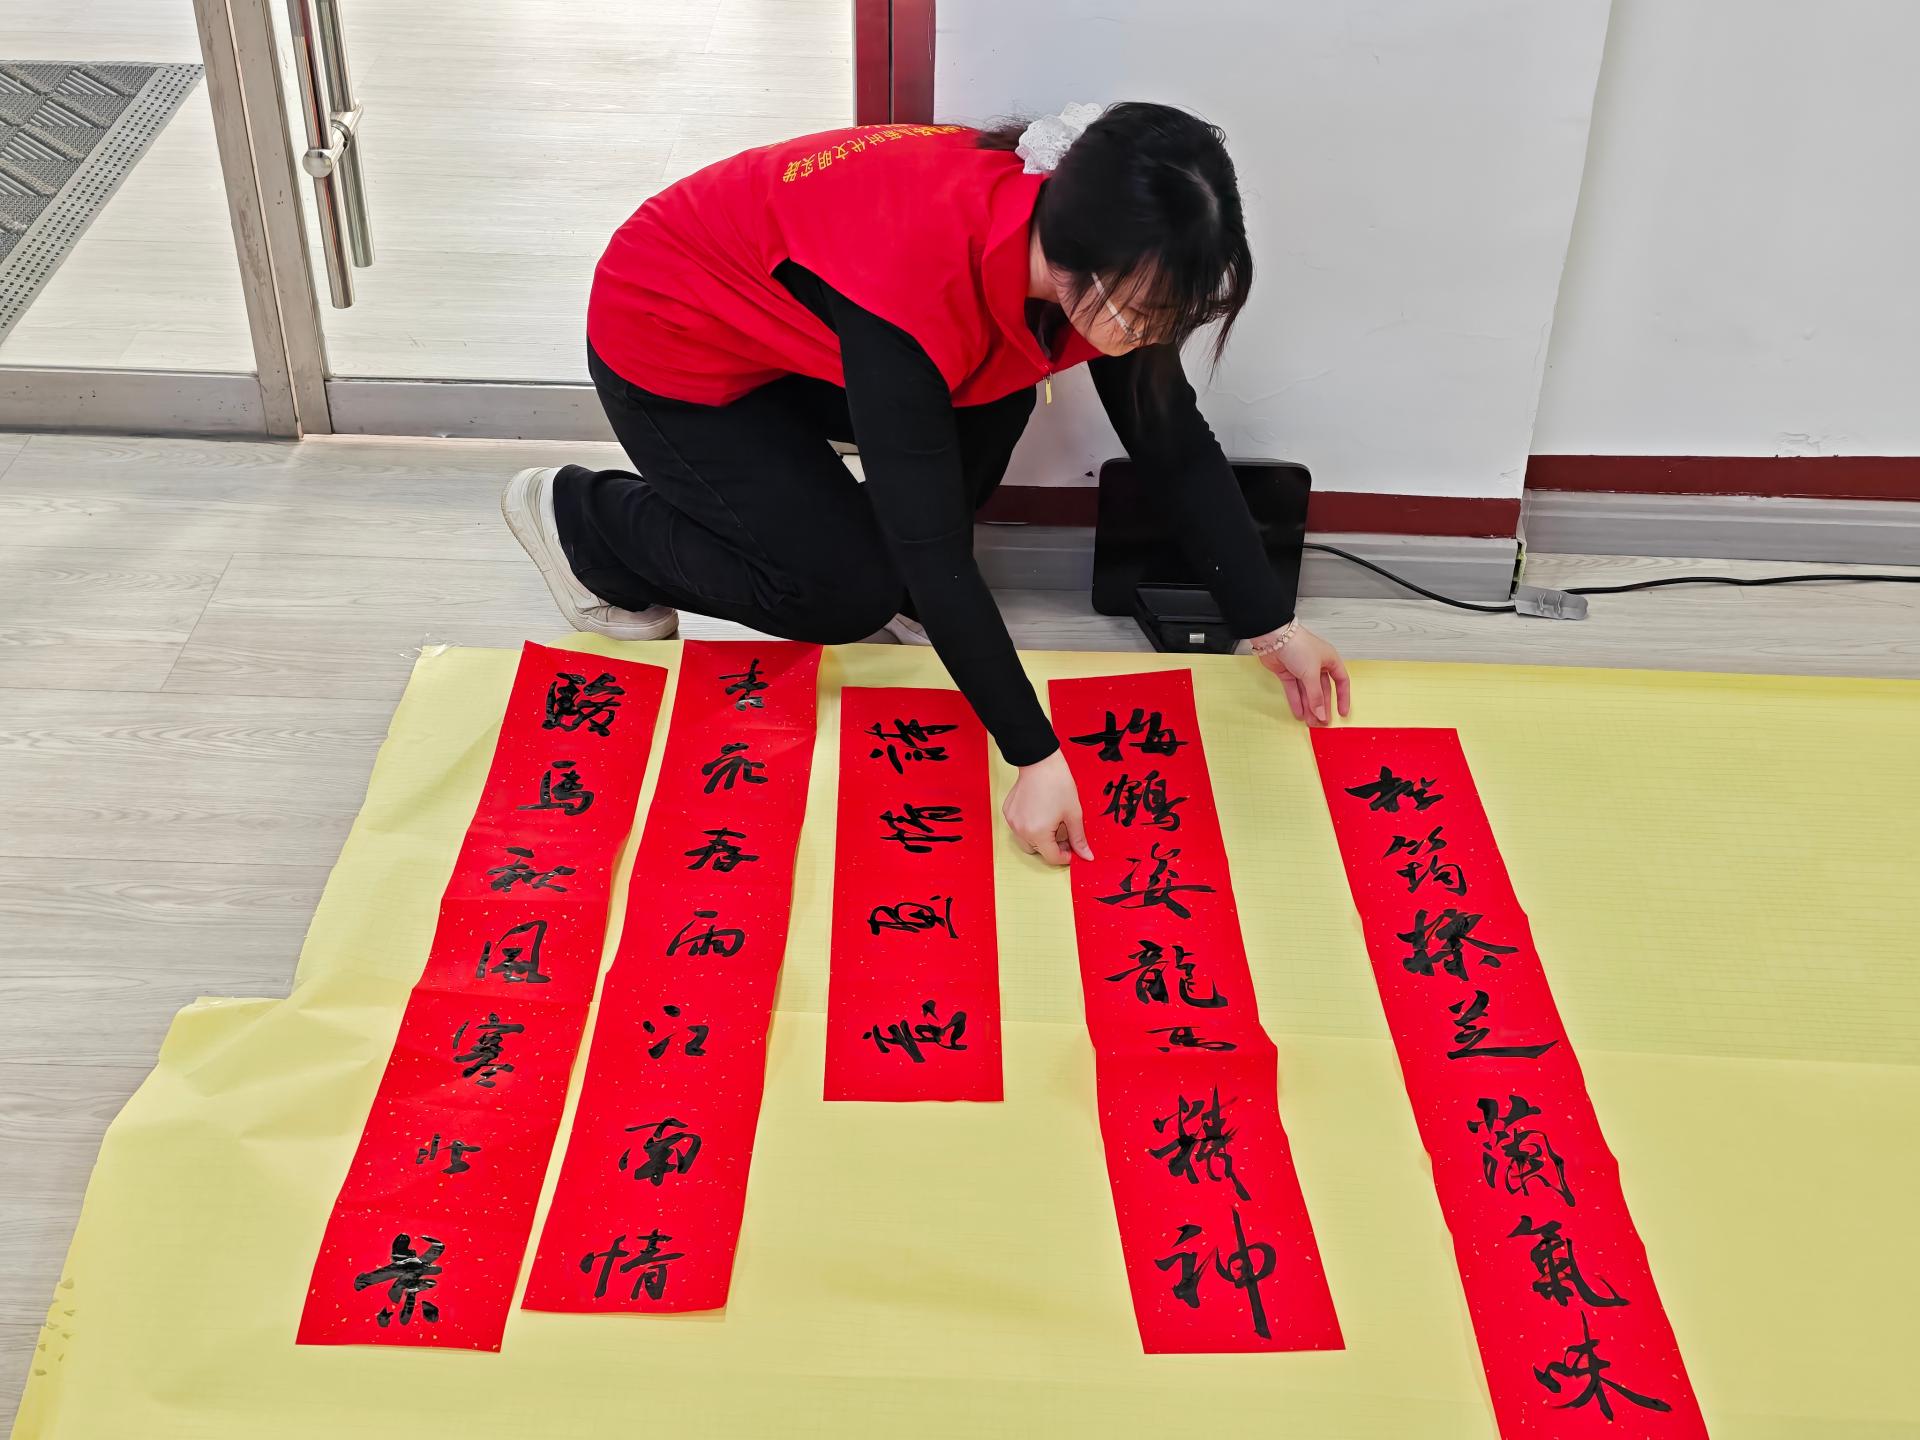 新时代文明实践
松筠操芝蘭氣味
梅鶴姿龍馬精神
詩情畫意
杏花春雨江南情
駿馬秋風塞北景